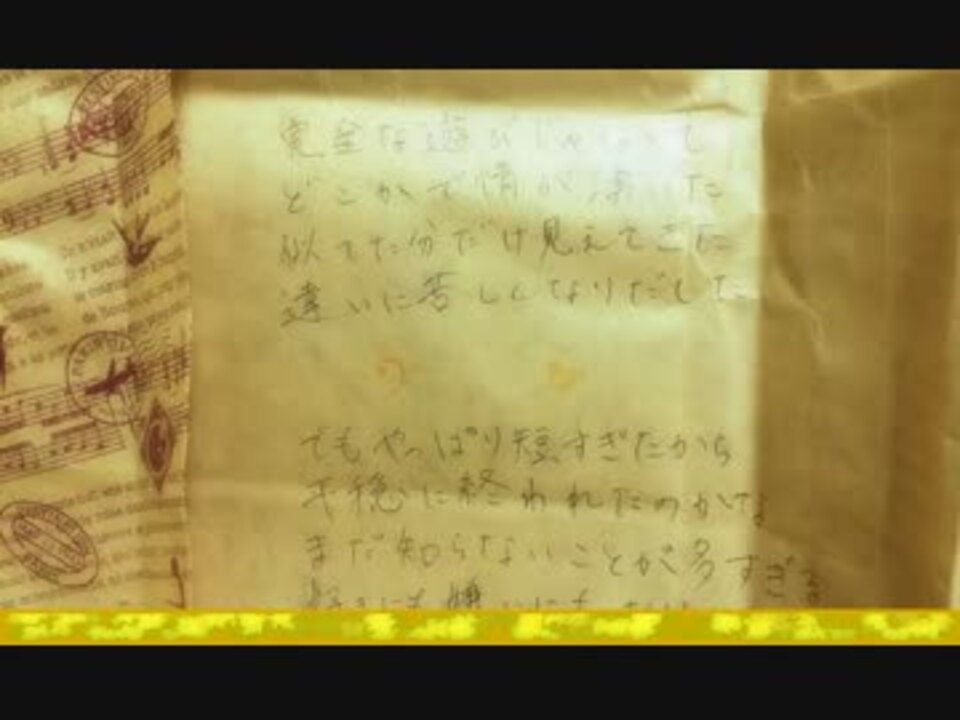 完全な遊び
どこかで情が
似てた分だけ見えてきた
違いに苦しくなりだした
でもやっぱり短すぎたから
平穏に終われたのかな
まだ知らないことが多すぎる
好きにも嫌いにも